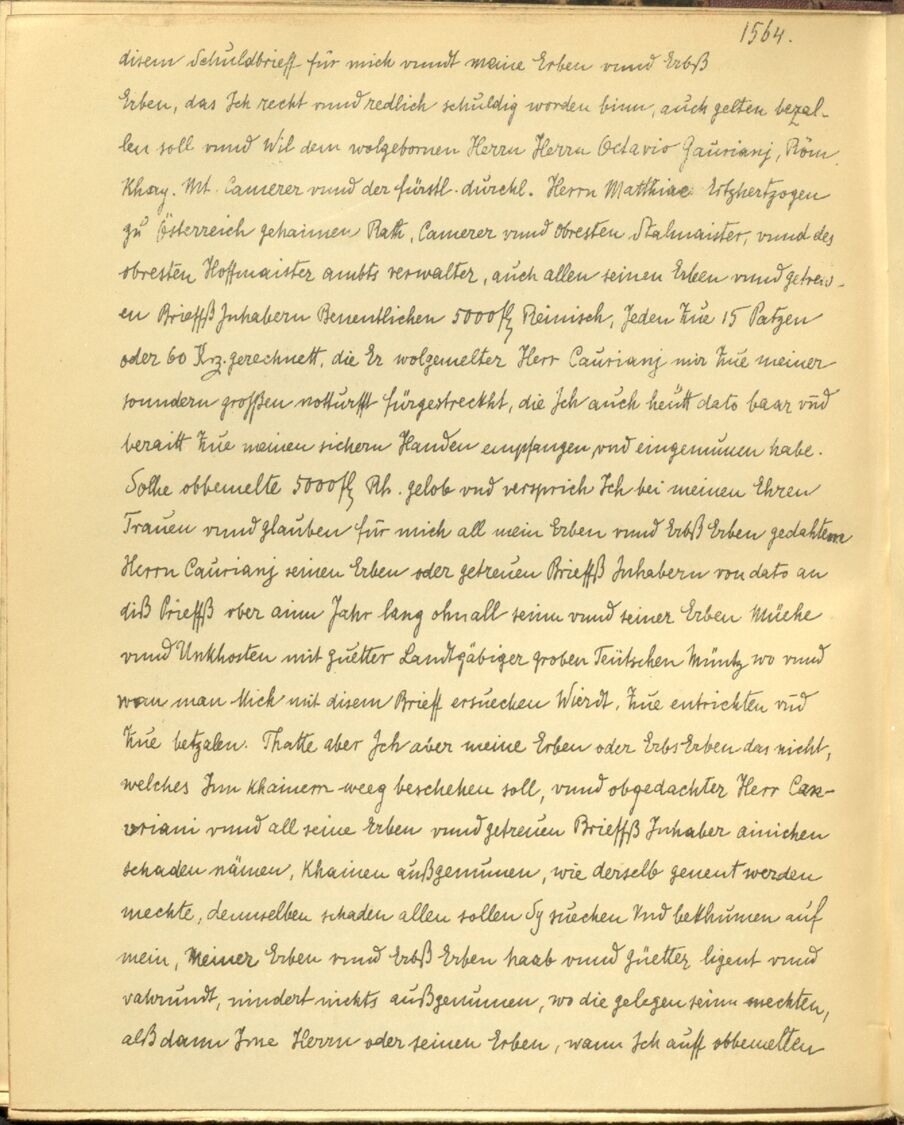 1564.
disem Schuldbrieff für mich vnndt meine Erben vnnd Erbß
Erben, das Ich recht vnnd redlich schuldig worden binn, auch gelten bezal-
len soll vnnd Wil dem wolgebornen Herrn Herrn Octavio Gaurianj, Röm.
Khay. Mt. Camerer vnnd der fürstl. durchl. Herrn Matthiae Ertzhertzogen
zu Österreich gehaimen Rath, Camerer vnnd Obresten Stalmaister, vnnd des
obresten Hoffmaister ambts verwalter, auch allen seinen Erben vnnd getrew-
en Brieffß Inhabern Benentlichen 5000 fl Reinisch, Jeden Zue 15 Patzen
oder 60 Krz. gerechnett, die Er wolgemelter Herr Caurianj mir Zue meiner
sonndern großen notturfft fürgestreckht, die Ich auch heutt dato baar vnd
beraitt Zue meinen sichern Handen empfangen vnd eingenumen habe.
Solhe obbemelte 5000 fl Rh. gelob vnd versprich Ich bei meinen Ehren
Trauen vnnd glauben für mich all mein Erben vnnd Erbß Erben gedahtem
Herrn Caurianj seinen Erben oder getreuen Brieffß Inhabern von dato an
diß Prieffß vber ainn Jahr lang ohn all seinn vnnd seiner Erben Müehe
vnnd Unkhosten mit guetter Landtgäbiger groben Teütschen Müntz wo vnnd
wan man Mich mit disem Brieff ersuechen Wierdt, Zue entrichten vnd
Zue betzalen. Thatte aber Ich aber meine Erben oder Erbs Erben das nicht,
welches Inn khainem weeg beschehen soll, vnnd obgedachter Herr Cau-
vriani vnnd all seine Erben vnnd getreuen Brieffß Inhaber ainichen
schaden nämen, Khainen außgenumen, wie derselb genent werden
mechte, dennselben schaden allen sollen Sy suechen Vnd bekhumen auf
mein, Meiner Erben vnnd Erbß Erben haab vnnd Güetter ligent vnnd
vahrundt, nindert nichts außgenumen, wo die gelegen seinn mechten,
alß dann Ime Herrn oder seinen Erben, wann Ich auff obbemelten